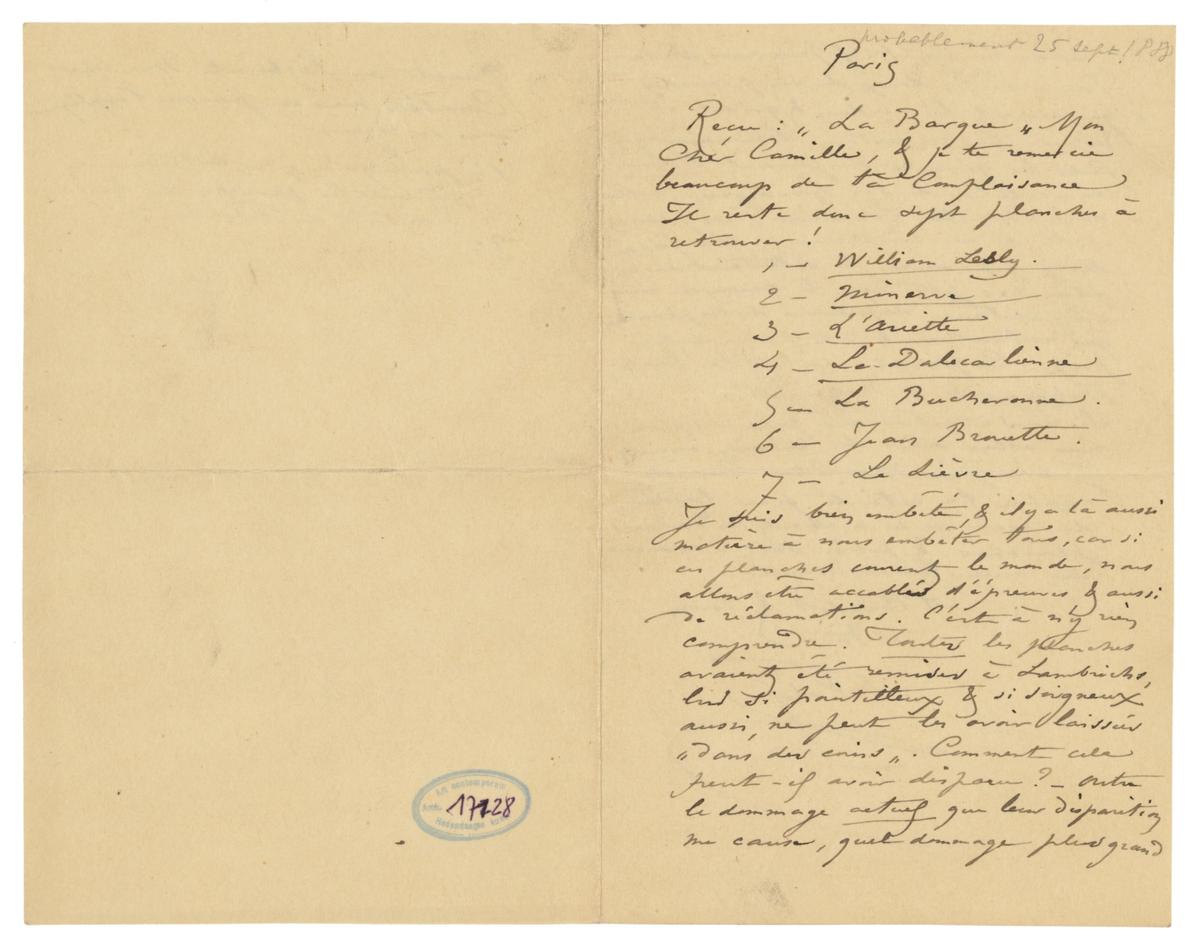 probablement 25 sept 1888
Paris
Reçu : „ La Barque „ Mon
Cher Camille, & je te remercie
beaucoup de ta Complaisance
Il reste donc sept planches à
retrouver !
1 — William Lesly.
2 — Minerve
3 — L'Ariette
4 — La Dalecarlienne
5 — La Bucheronne.
6 — Jean Brouette.
7 — Le Lièvre
Je suis bien embêté, & il y a là aussi
matière à nous embêter tous, car si
ces planches courent le monde, nous
allons être accablés d'épreuves & aussi
de réclamations. C'est à n'y rien
comprendre. Toutes les planches
avaient été remises à Lambrichs,
lui si pointilleux & si soigneux
aussi, ne peut les avoir laissées
„ dans des coins „. Comment cela
peut-il avoir disparu ? — outre
le dommage actuel que leur disparition
me cause, quel dommage plus grand
Art contemporain
17128
Hedendaagse kunst